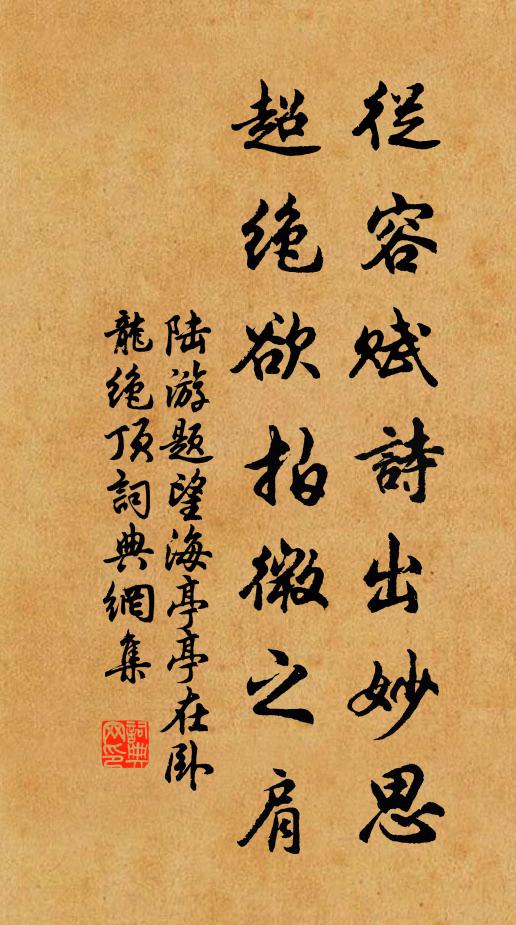 從容賦詩出妙思
超絶欲拍微之肩
陸游題望海亭亭在卧
龍絶頂詞典網集
詞典
网印